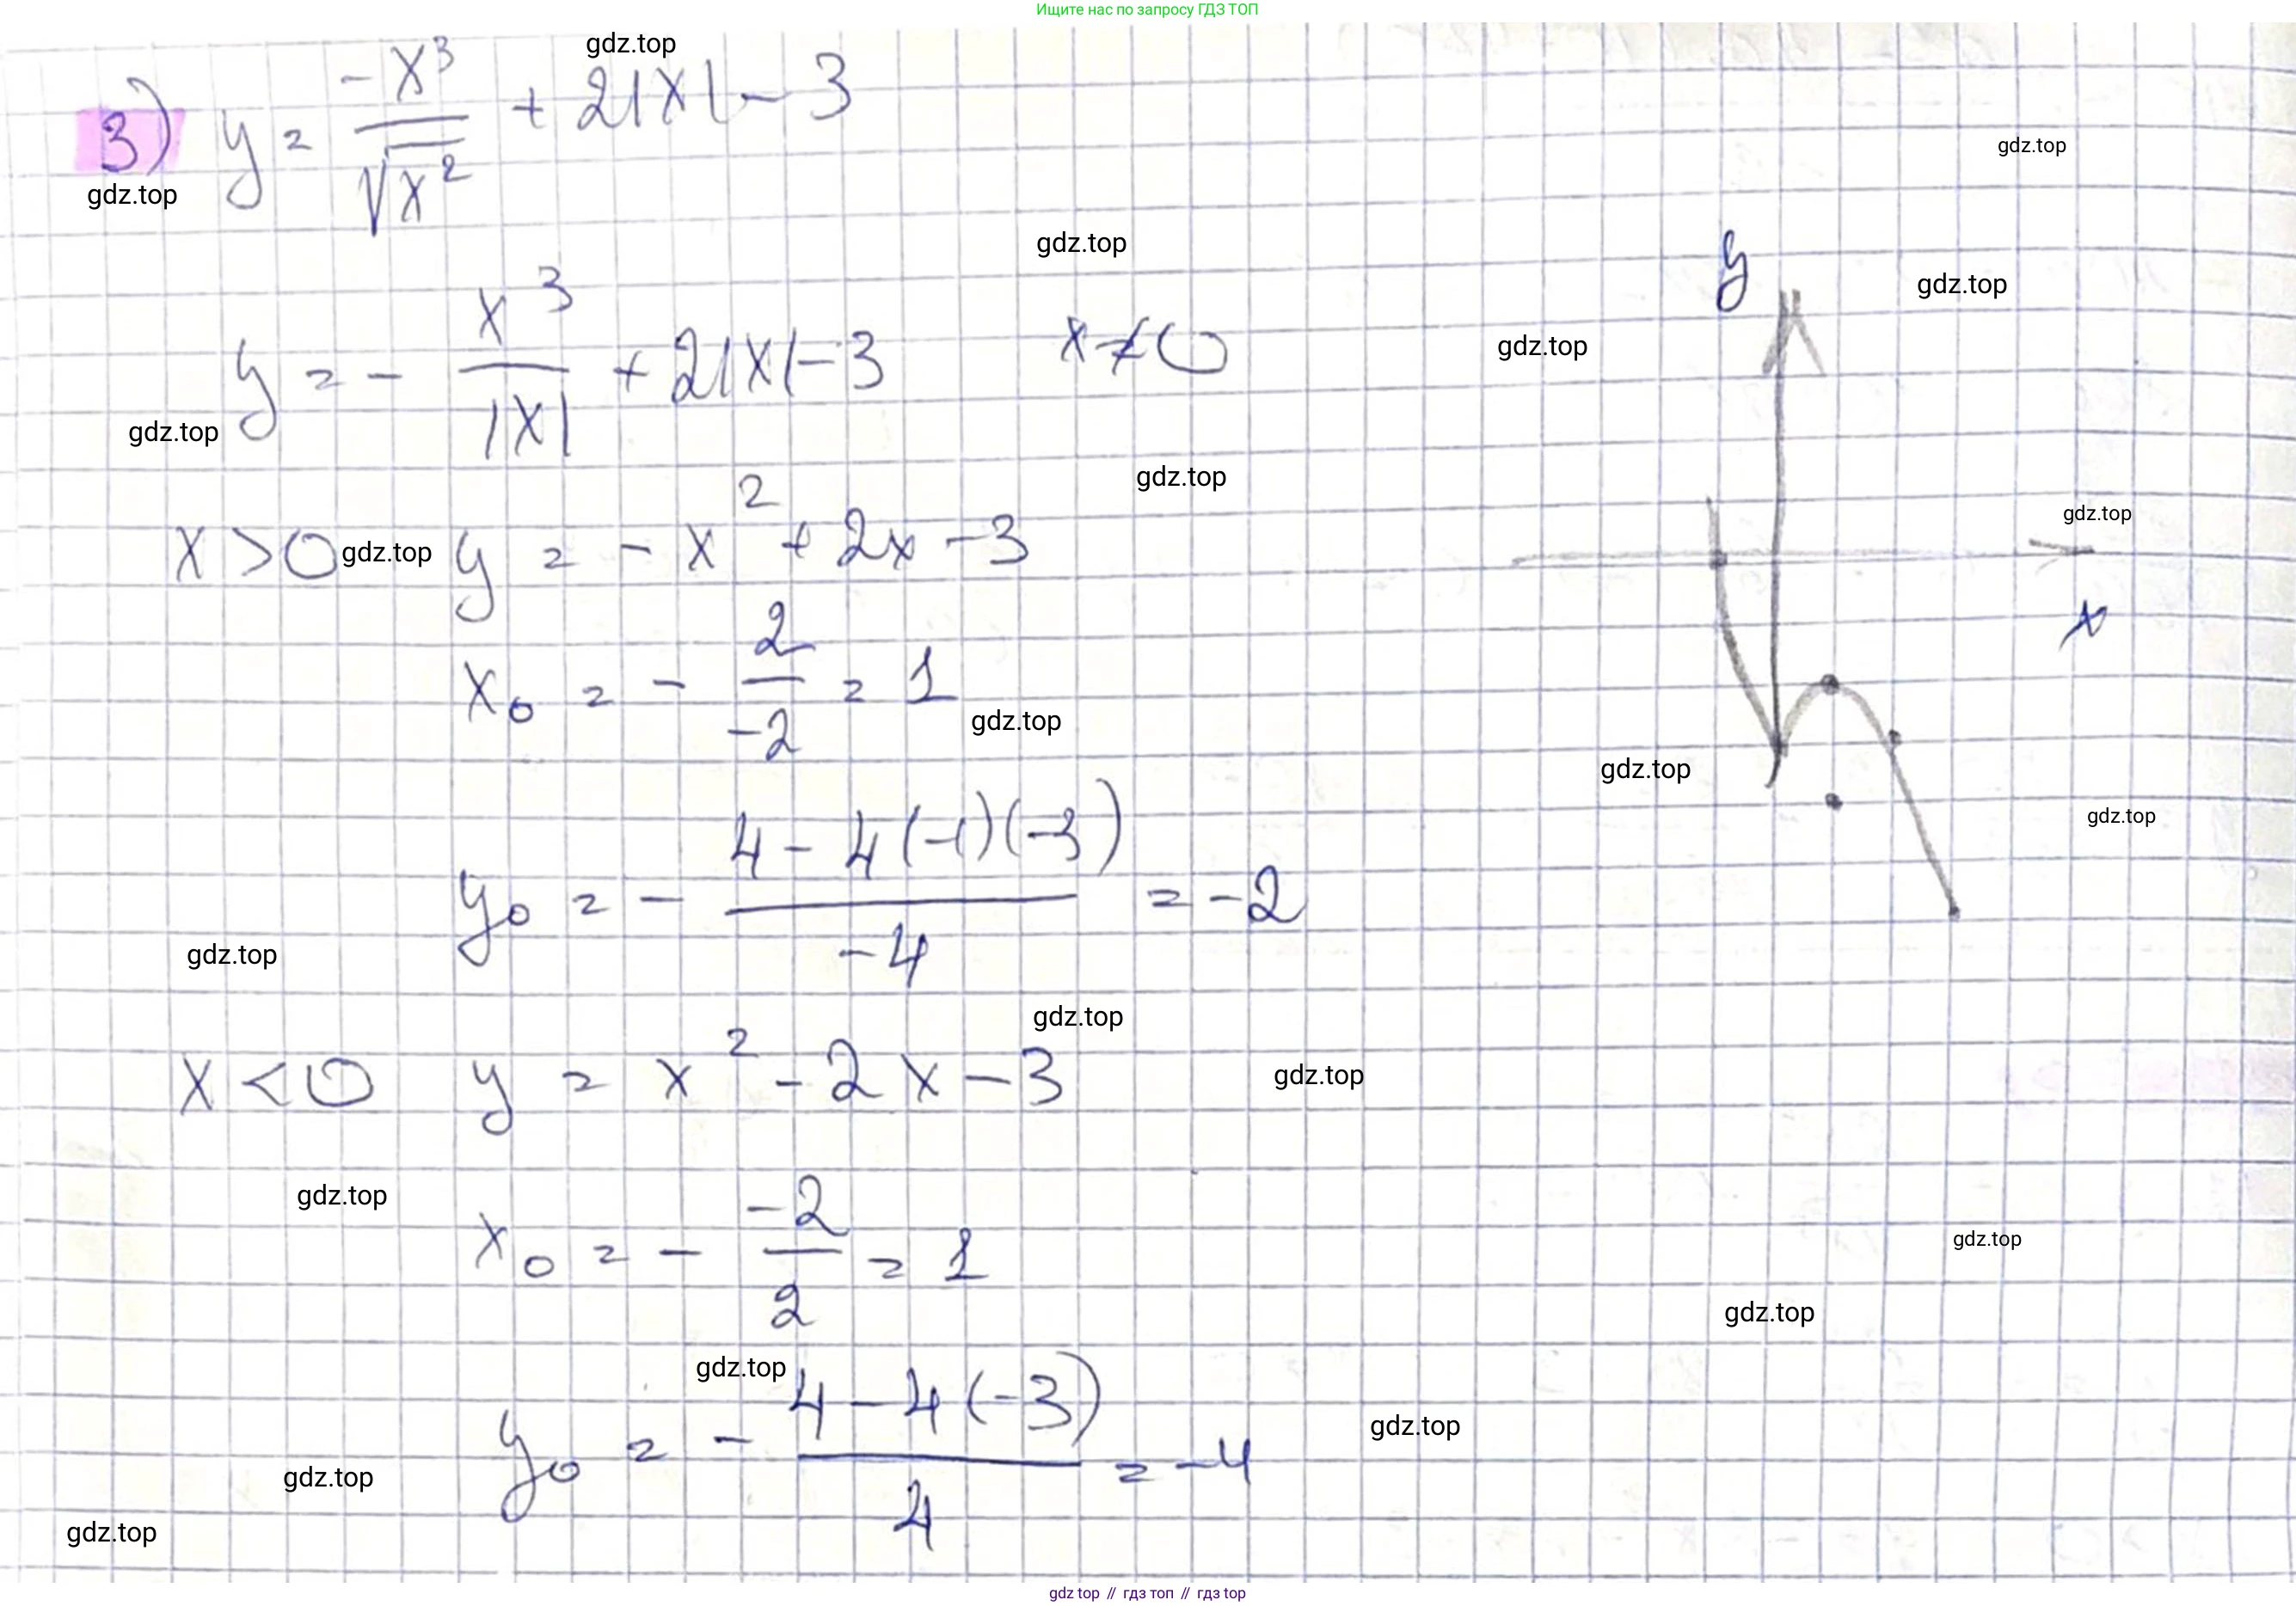 Ищите нас по запросу ГДЗ ТОП
gdz.top
3) y = -x³/√x² + 2|x| - 3
gdz.top
gdz.top
gdz.top
y
gdz.top
y = - x³/|x| + 2|x| - 3 x ≠ 0
gdz.top
gdz.top
gdz.top
gdz.top
x > 0 gdz.top y = - x² + 2x - 3
x
x₀ = - 2/-2 = 1
gdz.top
gdz.top
gdz.top
y₀ = - 4 - 4(-1)(-3)/-4 = -2
gdz.top
gdz.top
x < 0 y = x² - 2x - 3
gdz.top
gdz.top
x₀ = - -2/2 = 1
gdz.top
gdz.top
gdz.top
y₀ = - 4 - 4(-3)/4 = -4
gdz.top
gdz.top
gdz.top
gdz top // гдз топ // гдз top